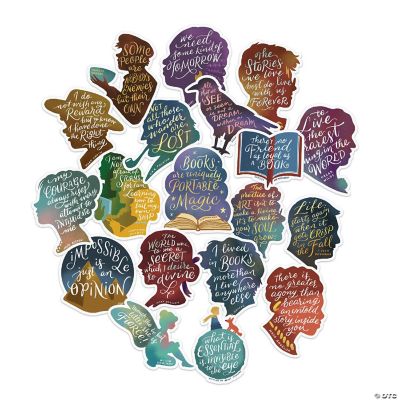 SOME
PEOPLE ARE
NOBODY'S
ENEMIES
BUT THEIR
OWN
we
need
some kind of
TOMORROW
the
STORIES
we love
best do live
with us
FOREVER
I do
not wish any
REWARD
but to know
I have done
the Right
thing
Not
all those
who wander
are
LOST
All that we
SEE
or seem
is but a
DREAM
within a
DREAM
There is no
Friend
as loyal as
A BOOK
to
LIVE
is the
rarest
thing in the
WORLD
My
COURAGE
always rises
with every
attempt to
INTIMIDATE
ME
I am
Not
Afraid of
STORMS
for I am
Learning
how to
Sail
my own
Ship
BOOKS
are uniquely
PORTABLE
Magic
The
practice of
ART isn't to
make a living.
It's to
make your
SOUL
grow
Life
starts again
when it
gets CRISP
in the
Fall
IMPOSSIBLE
is
just an
OPINION
The
WORLD was
to me a
SECRET
which I
desire to
divine
I lived
in BOOKS
more than
I lived
anywhere
else
There is
no greater
agony than
bearing
an untold
story inside
you
what is
ESSENTIAL
is invisible
to the
eye
OTC